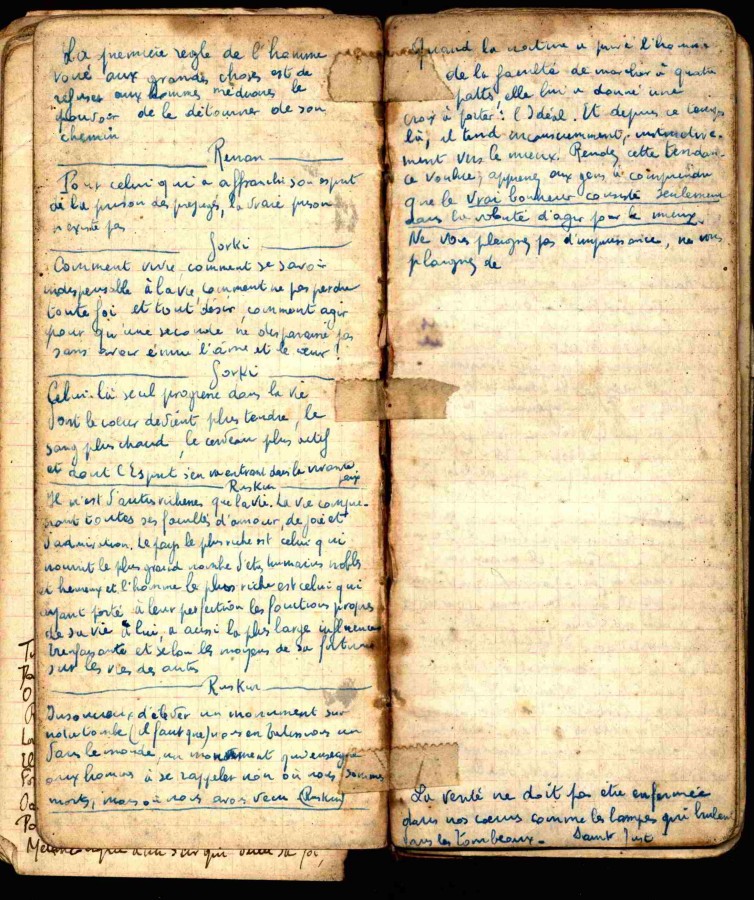 La première règle de l'homme
voué aux grandes choses est de
refuser aux hommes médiocres le
pouvoir de le détourner de son
chemin
Renan
Pour celui qui a affranchi son esprit
de la prison des préjugés, la vraie prison
n'existe pas
Gorki
Comment vivre comment se savoir
indispensable à la vie comment ne pas perdre
toute foi et tout désir, comment agir
pour qu'une seconde ne disparaisse pas
sans avoir ému l'âme et le cœur !
Gorki
Celui-là seul progresse dans la vie
dont le cœur devient plus tendre, le
sang plus chaud, le cerveau plus actif
et dont l'Esprit s'en va entrant dans la vivante
paix
Ruskin
Il n'est d'autres richesses que la vie. La vie compre-
nant toutes ses facultés d'amour, de joie et
d'admiration. Le pays le plus riche est celui qui
nourrit le plus grand nombre d'êtres humains nobles
et heureux et l'homme le plus riche est celui qui
ayant porté à leur perfection les fonctions propres
de sa vie à lui, a aussi la plus large influence
bienfaisante et selon les moyens de sa fortune
sur les vies des autres
Ruskin
d'élever un monument sur
notre tombe (il faut que) nous en bâtissions un
dans le monde, un monument qui enseigne
aux hommes à se rappeler non où nous sommes
morts, mais où nous avons vécu (Ruskin)
Quand la nature a privé l'homme
de la faculté de marcher à quatre
pattes elle lui a donné une
croix à porter : l'Idéal. Et depuis ce temps
là, il tend inconsciemment, instinctive-
ment vers le mieux. Rendez cette tendan-
ce voulue; apprenez aux gens à comprendre
que le vrai bonheur consiste seulement
dans la volonté d'agir pour le mieux.
Ne vous plaignez pas d'impuissance, ne vous
plaignez de
La vérité ne doit pas être enfermée
dans nos cœurs comme les lampes qui brûlent
dans les tombeaux. Saint Just